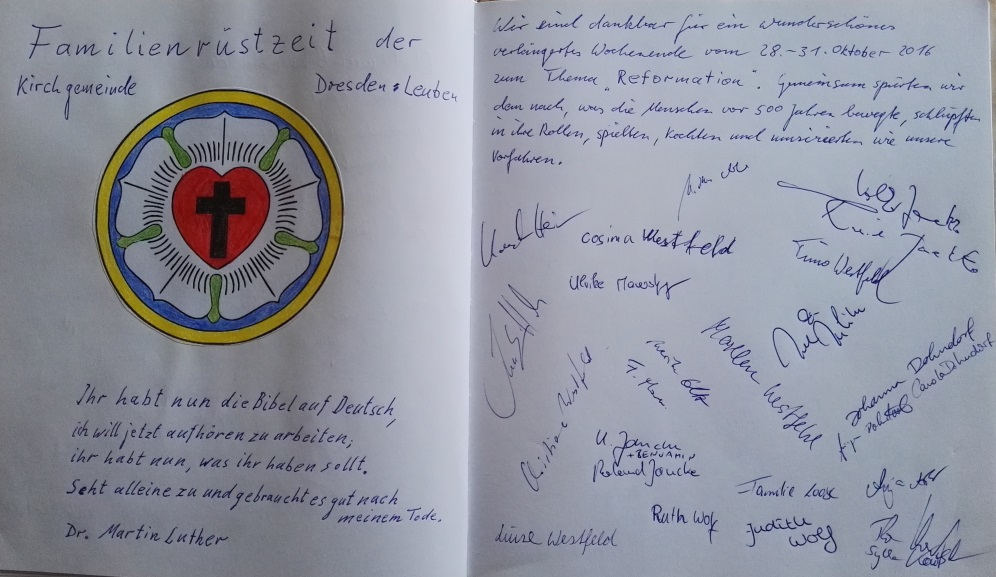 Familienrüstzeit der
Kirchgemeinde Dresden-Leuben
Ihr habt nun die Bibel auf Deutsch,
ich will jetzt aufhören zu arbeiten;
ihr habt nun, was ihr haben sollt.
Seht alleine zu und gebraucht es gut nach
meinem Tode.
Dr. Martin Luther
Wir sind dankbar für ein wunderschönes
verlängertes Wochenende vom 28.-31. Oktober 2016
zum Thema "Reformation". Gemeinsam spürten wir
dem nach, was die Menschen vor 500 Jahren bewegte, schlüpften
in ihre Rollen, spielten, kochten und musizierten wie unsere
Vorfahren.
Cosima Westfeld
Timo Westfeld
Ulrike
Marlen Westfeld
Johanna Dohndorf
Carola Dohndorf
Christiane Westfeld
U. Jancke
+ BENJAMIN
Roland Jancke
Familie
Ruth Wolf
Judith
Wolf
Luise Westfeld